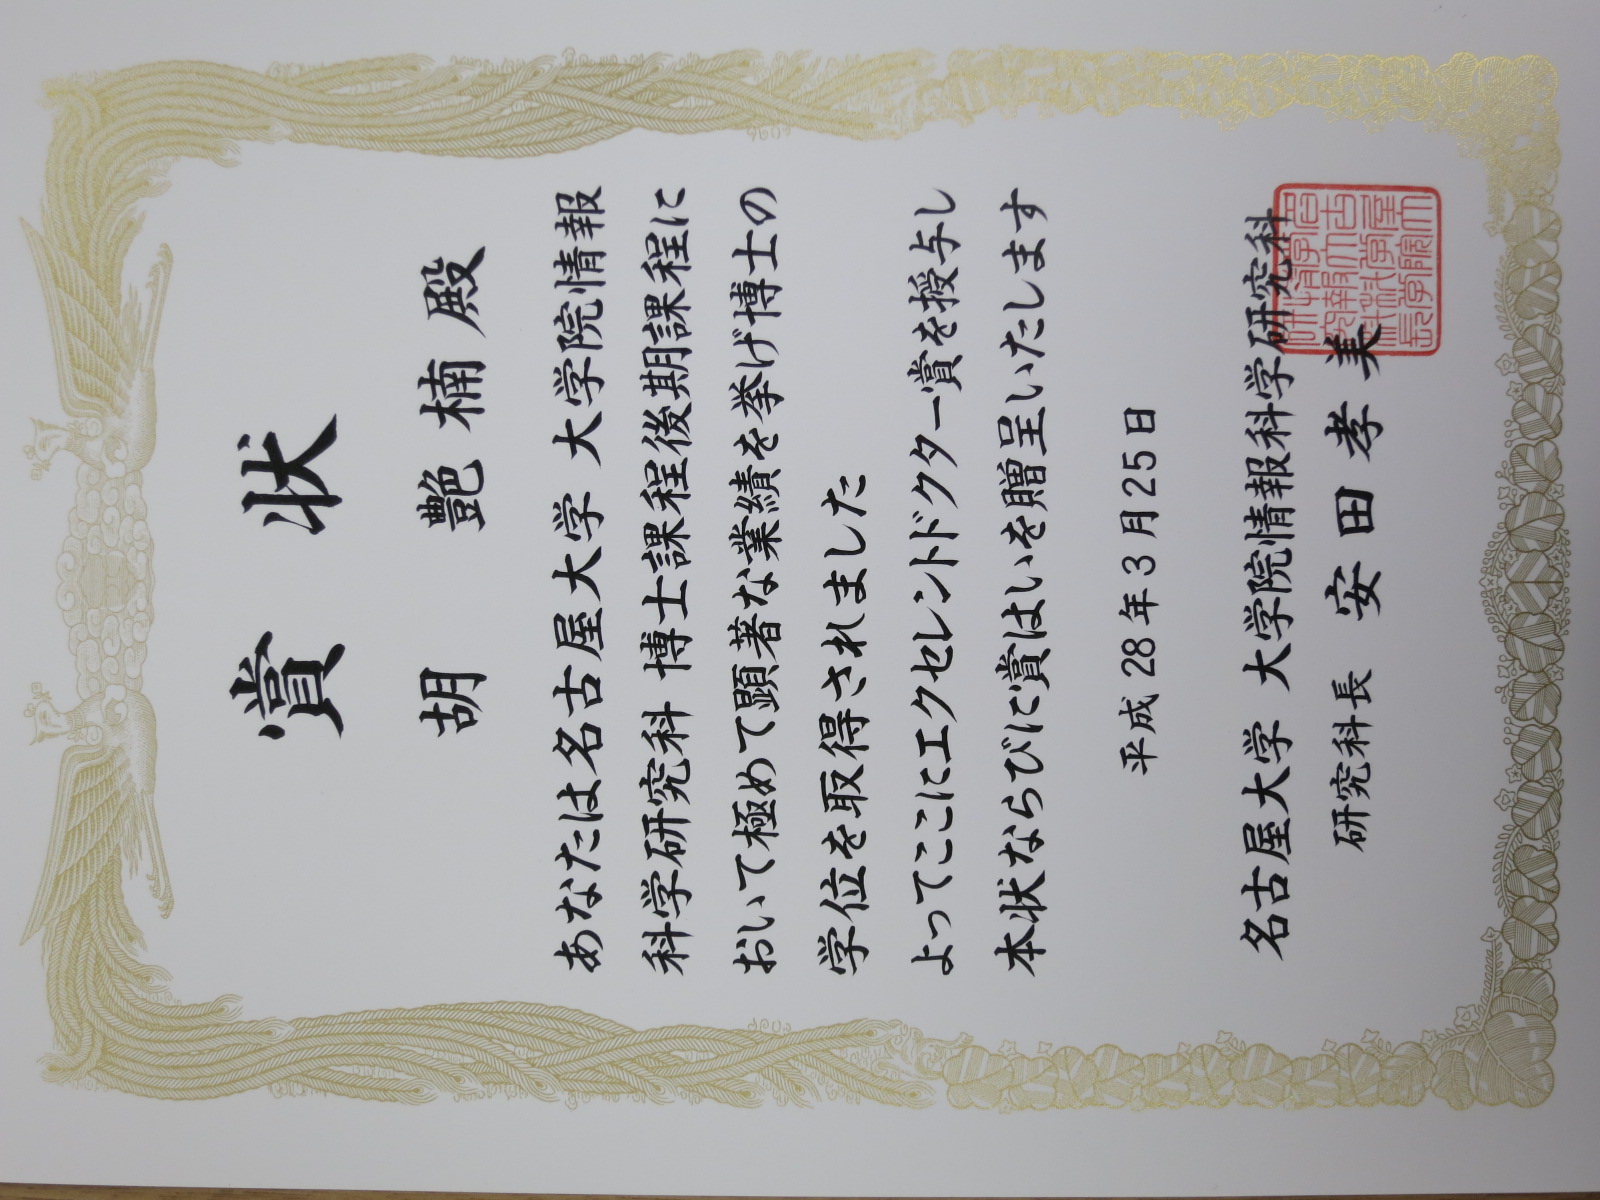 賞状
胡 艶楠 殿
あなたは名古屋大学 大学院情報
科学研究科 博士課程後期課程に
おいて極めて顕著な業績を挙げ博士の
学位を取得されました
よってここにエクセレントドクター賞を授与し
本状ならびに賞はいを贈呈いたします
平成28年3月25日
名古屋大学 大学院情報科学研究科
研究科長 安田孝美